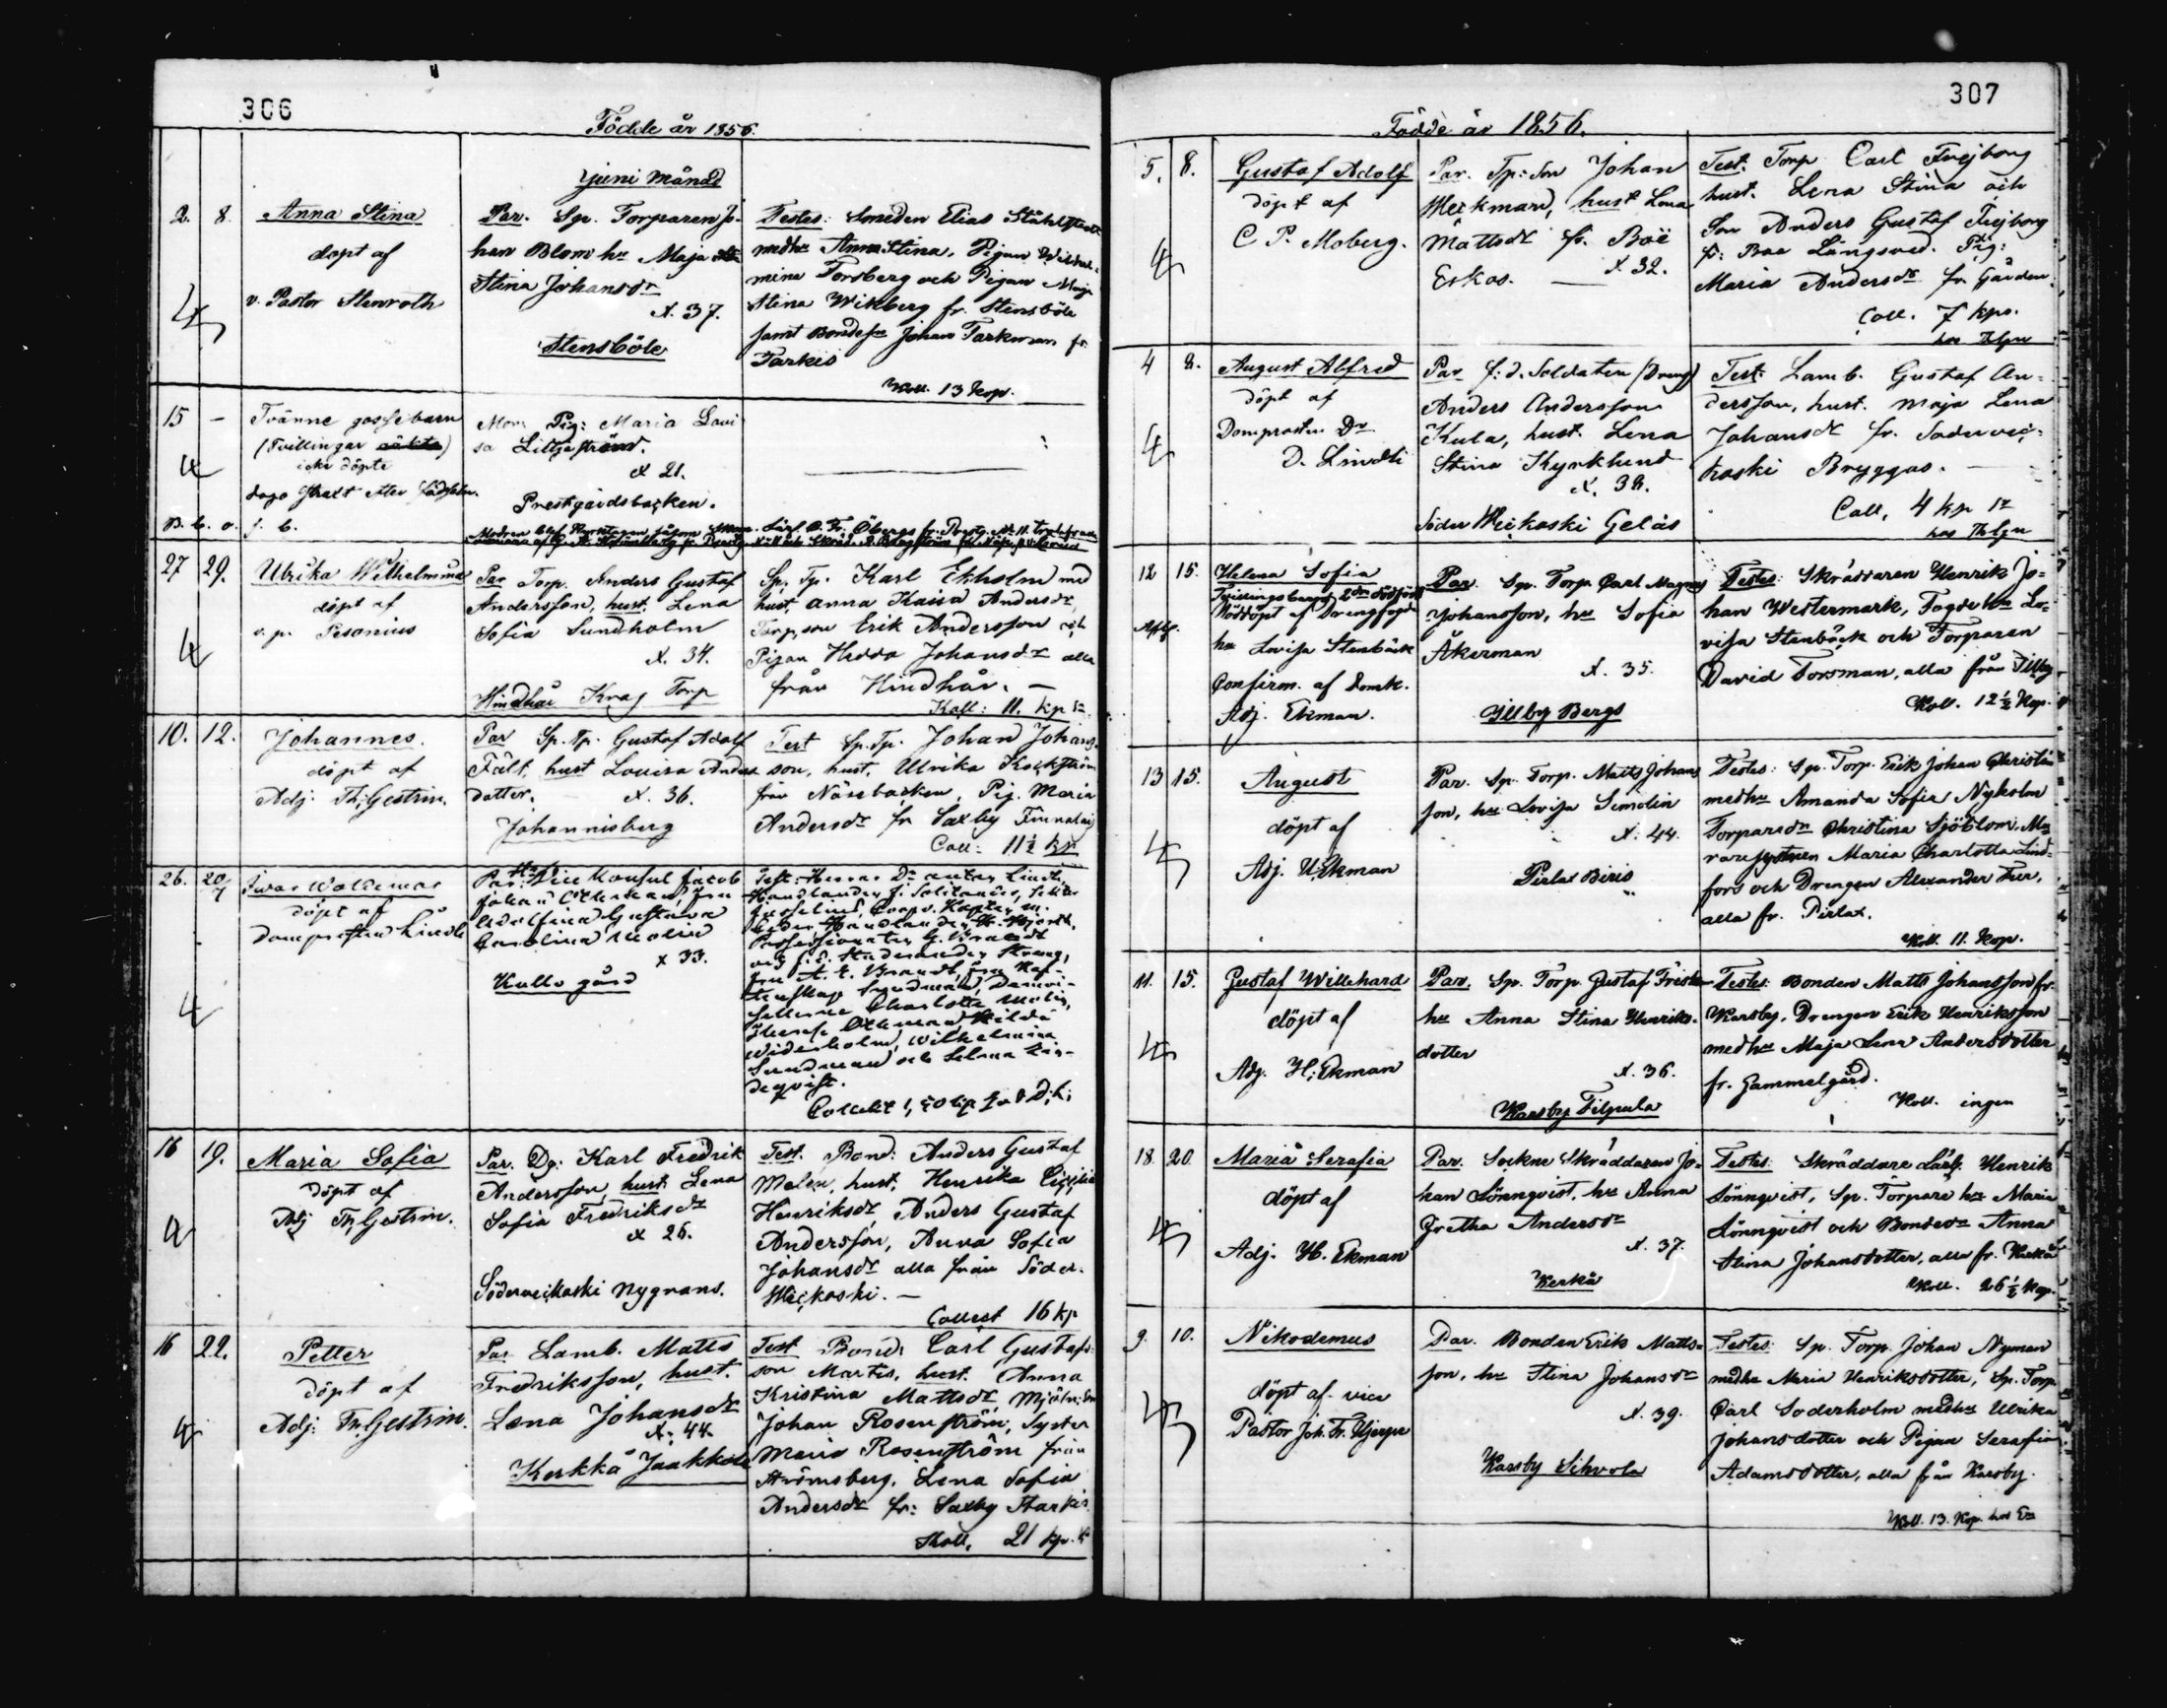 306
Födde år 1856.
Juni Månad
2. 8. Anna Stina
döpt af
v. Pastor Stenroth
Par. Sp. Torparen Jo-
han Blom hu Maja
Stina Johansdr
x. 37.
Stensböle
Testes: Smeden Elias
medhu Anna Stina, Pigan Wilhel-
mina Forsberg och Pigan Maja
Stina Wikberg fr. Stensböle
samt Bondesn Johan Tarkman fr.
Tarkis
Koll. 13 Kop.
15 – Tvänne gossebarn
(Tvillingar)
icke döpte
dogo straxt efter födseln.
Mor: Pig: Maria Lovi
sa Liljeström.
x 21.
Prestgårdsbacken.
27 29. Ulrika Wilhelmina
döpt af
v. p. Pesonius
Par Torp. Anders Gustaf
Andersson, hust. Lena
Sofia Sundholm
x. 34.
Hindhår Krag Torp
Sp. Tp. Karl Ekholm med
hust. Anna Kaisa Andersdr,
Torp. son Erik Andersson och
Pigan Hedda Johansdr alla
från Hindhår. –
Koll: 11. kp sr.
10. 12. Johannes.
döpt af
Adj. Th. Gestrin.
Par Sp. Tp. Gustaf Adolf
Fält, hust Lovisa Anders
dotter. x. 36.
Johannisberg
Test Sp. Tp. Johan Johans-
son, hust. Ulrika
från Näsebacken, Pig. Maria
Andersdr fr Saxby Finnalai
Coll: 11½ kp
26. 20/7 Ivar Woldemar
döpt af
Domprosten Lindh
Par: Vice Konsul Jacob
Johan Öhman, fru
Adolfina Gustava
Carolina Molin
x 33.
Kullo gård
Test: Herrar Dr Lindh,
Handlanden J. Solitander,
G. Brandt
och f. d. Studeranden Streng,
fru A. E. Brandt, fru Kof-
Sundman, Demoi-
sellerna Charlotte Molin,
Öhman, Hilda
Widerholm, Wilhelmina
Sundman och Selma Lin-
deqvist.
16 19. Maria Sofia
döpt af
Adj Th. Gestrin.
Par. Dg: Karl Fredrik
Andersson, hust. Lena
Sofia Fredriksdr
x 26.
Söderveckoski Nygrans.
Test. Bond: Anders Gustaf
Malen, hust. Henrika Cicilia
Henriksdr, Anders Gustaf
Andersson, Anna Sofia
Johansdr alla från Söder-
Weckoski. –
Collect 16 kp
16 22. Petter
döpt af
Adj: Th. Gestrin.
Par Lamb. Matts
Fredriksson, hust.
Lena Johansdr
x. 44.
Kerkkå Jaakkola
Test Bond. Carl Gustafs-
son Martis, hust. Anna
Kristina Mattsdr, Mjöln: Son
Johan Rosenström, Syster
Maria Rosenström från
Strömsberg. Lena Sofia
Andersdr fr: Saxby Starkis
Koll. 21 kp.
307
Födde år 1856.
5. 8. Gustaf Adolf
döpt af
C P. Moberg.
Par. Tp: Son Johan
Weckman, hust. Lena
Mattsdr fr. Boe
Eskas. — x. 32.
Test. Torp Carl Frejborg
hust. Lena Stina och
Son Anders Gustaf Frejborg
fr: Boe Långsved. Pig:
Maria Andersdr fr. Gården.
Coll. 7 kpr.
4 8. August Alfred
döpt af
Domprosten Dr
D. Lindh
Par f: d. Soldaten (Dreng)
Anders Andersson
Kula, hust. Lena
Stina Kyrklund
x. 38.
Söder Weckoski Gelås
Test: Lamb. Gustaf An-
dersson, hust. Maja Lena
Johansdr fr. Södervec-
koski Bryggas. –
Coll. 4 kp sr
12 15. Helena Sofia
Nöddöpt af Drengfogde
hu Lovisa Stenbäck
Confirm. af Domk.
Adj. Ekman.
Par. Sp. Torp. Carl Magnus
Johansson, hu Sofia
Åkerman
x. 35.
Illby Bergs
Testes: Skräddaren Henrik Jo-
han Westermark, Fogde hu Lo-
visa Stenbäck och Torparen
David Forsman, alla från Illby
Koll. 12½ Kop.
13 15. August
döpt af
Adj. H. Ekman
Par. Sp. Torp. Matts Johans
son, hu Lovisa Simolin
x. 44.
Pirlax Biris
Testes: Sp. Torp. Erik Johan Christian
medhu Amanda Sofia Nyholm
Torparedr Christina Sjöblom, Mu
raresystren Maria Charlotta Lind-
fors och Drengen Alexander Fur,
alla fr. Pirlax.
Koll. 11. Kop.
11. 15. Gustaf Willehard
döpt af
Adj. H. Ekman
Par. Sp. Torp. Gustaf Frisk
hu Anna Stina Henriks-
dotter
x. 36.
Karsby Filpula
Testes: Bonden Matts Johansson fr.
Karsby, Drengen Erik Henriksson
medhu Maja Lena Andersdotter
fr. Gammelgård.
Koll. ingen
18. 20. Maria Serafia
döpt af
Adj. H. Ekman
Par. Sockne Skräddaren Jo-
han Lönnqvist, hu Anna
Gretha Andersdr
x. 37.
Kerkå
Testes: Skräddare Lärl. Henrik
Lönnqvist, Sp. Torpare hu Maria
Lönnqvist och Bondedr Anna
Stina Johansdotter, alla fr. Kerkå
Koll. 26½ Kop.
9. 10. Nikodemus
döpt af vice
Pastor Joh. Fr. Hjerpe
Par. Bonden Erik Matts-
son, hu Stina Johansdr
x. 39.
Karsby Sihvola
Testes: Sp. Torp. Johan Nyman
medhu Maria Henriksdotter, Sp. Torp
Carl Soderholm medhu Ulrika
Johansdotter och Pigan Serafia
Adamsdotter, alla från Karsby.
Koll. 13. Kop.